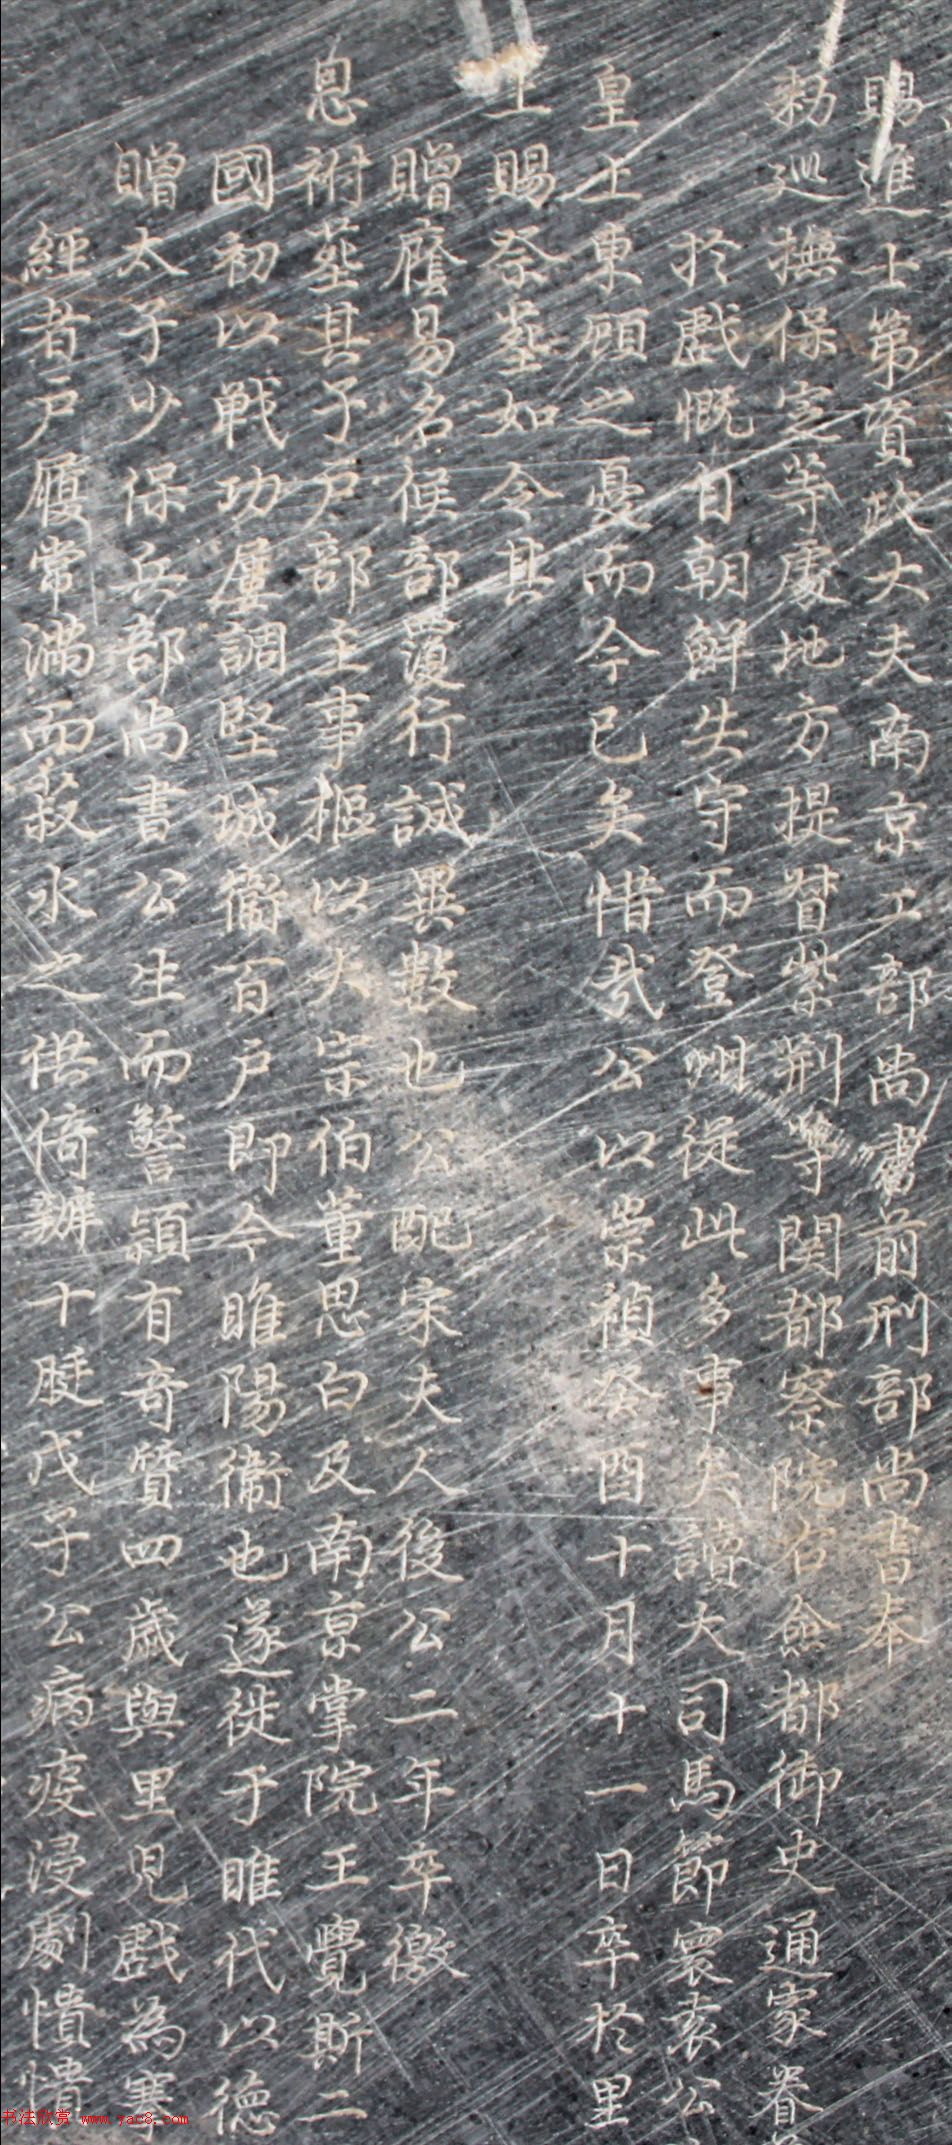 賜進士第資政大夫南京工部尚書前刑部尚書奉
勅巡撫保定等處地方提督紫荆等関都察院右僉都御史通家眷
於戲慨自朝鮮失守而登州從此多事矣讀大司馬節寰袁公
皇上東顧之憂而今已矣惜哉公以崇禎癸酉十月十一日卒於里
上賜祭塟如令其
贈廕易名候部覆行誠異數也公配宋夫人後公二年卒徼
恩祔塟其子户部主事樞以大宗伯董思白及南京掌院王覺斯二
國初以戰功屢調堅城衞百户即今睢陽衞也遂徙于睢代以德
贈太子少保兵部尚書公生而警穎有奇質四歲與里兒戲為寋
經者户屨常滿而菽水之供倚辦十脡戊子公病疫浸劇憒憒
书法欣赏 www.yac8.com